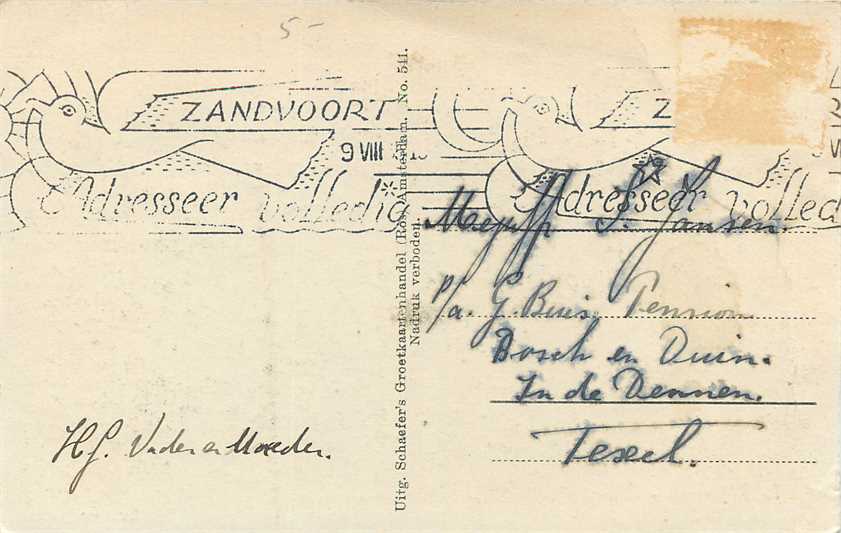 5-
ZANDVOORT
9 VIII
Adresseer volledig
Adresseer volled
Uitg. Schaefer's Groetkaartenhandel (Ro5) Amsterdam. No. 541.
Nadruk verboden.
Mejuffr S. Jansen.
p/a. G. Buis Pension
Bosch en Duin.
In de Dennen.
Texel.
Hg. Vader en Moeder.